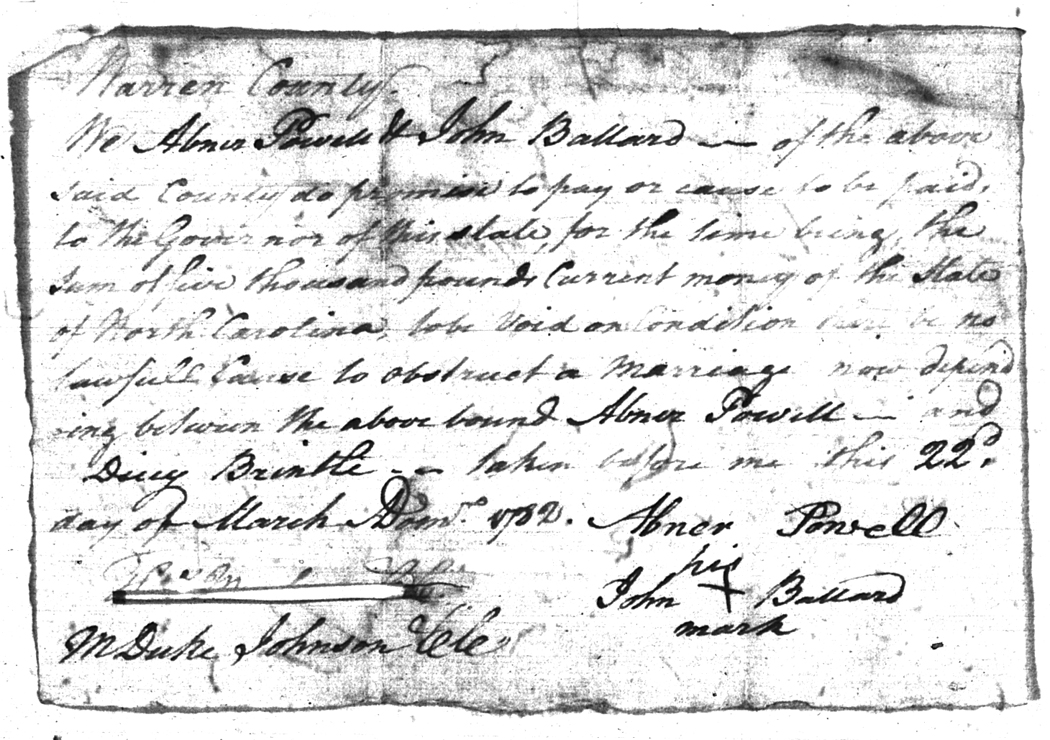 Warren County.
We Abner Powell & John Ballard — of the above
said County do promise to pay or cause to be paid,
to the Governor of this state, for the time being, the
Sum of five thousand pounds Current money of the State
of North Carolina, to be Void on Condition there be no
lawfull Cause to obstruct a Marriage now depend
ing between the above bound Abner Powell — and
Dicy Brintle — taken before me this 22d.
day of March ADom. 1782. Abner Powell
his
John + Ballard
mark
M Duke Johnson Clk